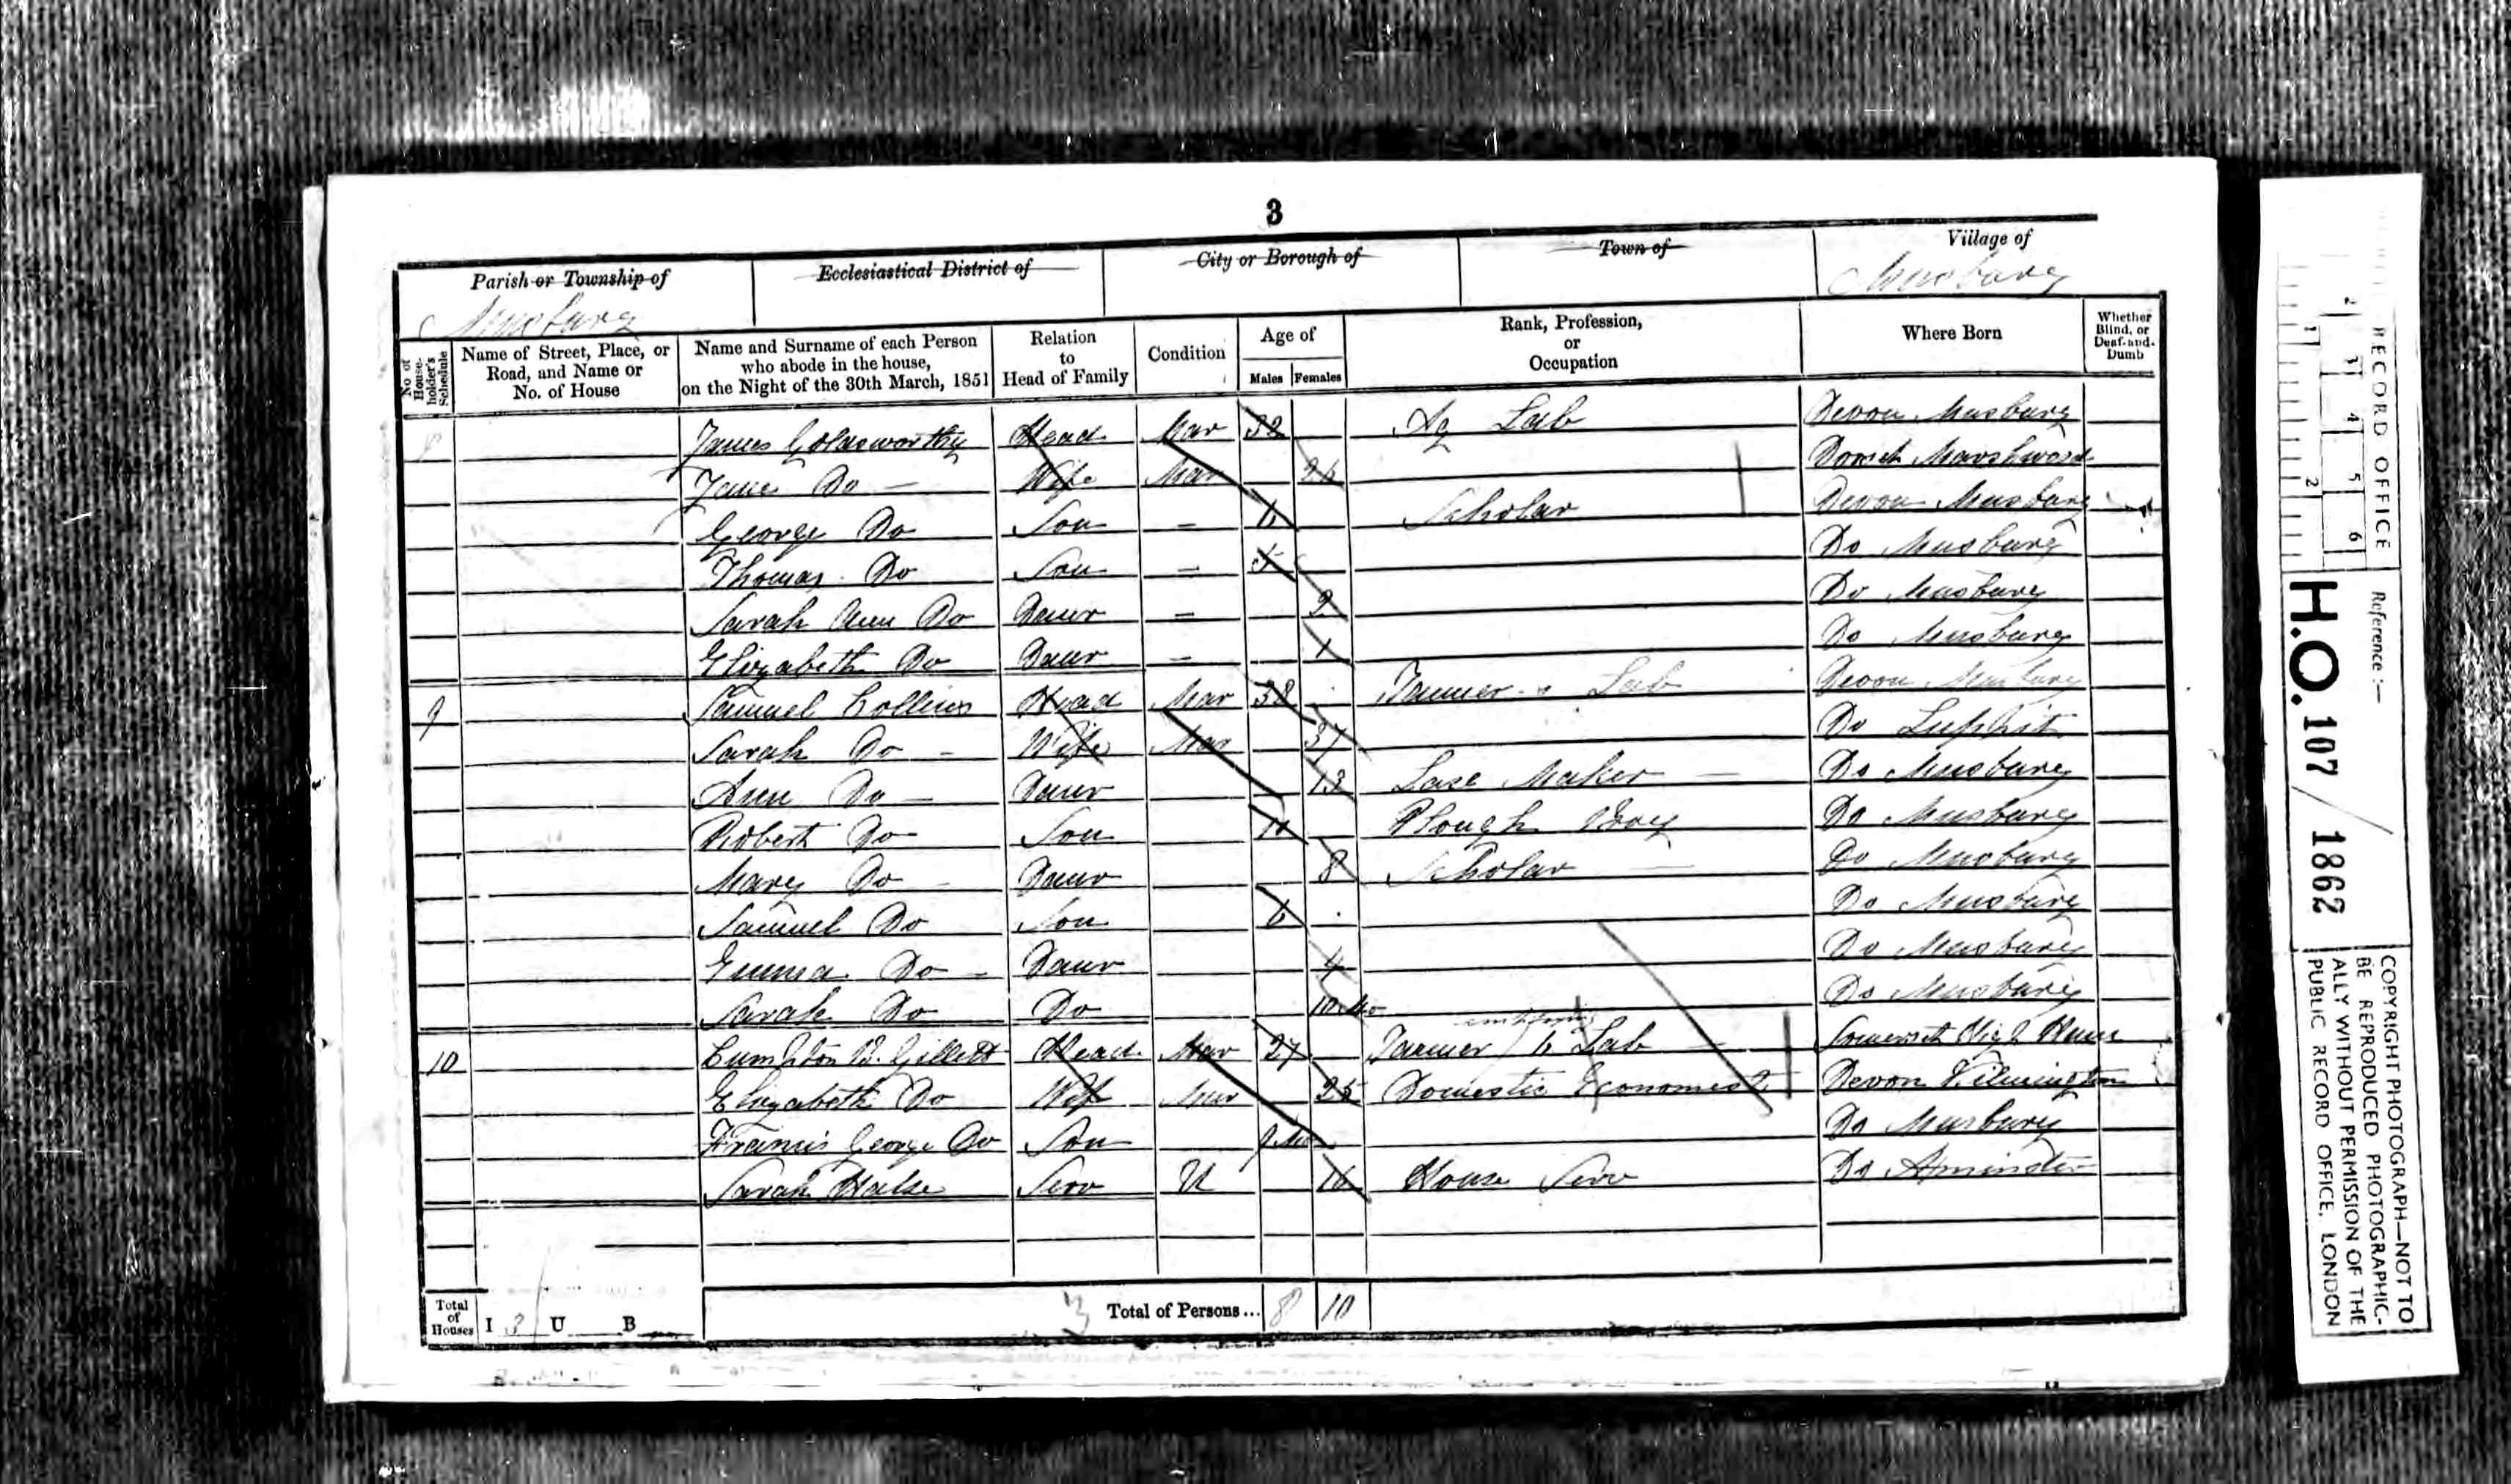 3
Parish or Township of
Ecclesiastical District of
City or Borough of
Town of
Village of
Musbury
Musbury
No of House-holder's Schedule
Name of Street, Place, or Road, and Name or No. of House
Name and Surname of each Person who abode in the house, on the Night of the 30th March, 1851
Relation to Head of Family
Condition
Age of
Males
Females
Rank, Profession, or Occupation
Where Born
Whether Blind, or Deaf-and-Dumb
8 James Goldsworthy Head Mar 32 Ag Lab Devon Musbury
Jane Do Wife Mar 26 Dorset Marshwood
George Do Son 6 Scholar Devon Musbury
Thomas Do Son Do Musbury
Sarah Ann Do Daur 2 Do Musbury
Elizabeth Do Daur 1 Do Musbury
9 Samuel Collins Head Mar 38 Lab Devon Musbury
Sarah Do Wife Mar 37 Do Luppit
Ann Do Daur 13 Lase Maker Do Musbury
Robert Do Son Plough Boy Do Musbury
Mary Do Daur 8 Scholar Do Musbury
Samuel Do Son 6 Do Musbury
Emma Do Daur 4 Do Musbury
Sarah Do Do 10 Mo Do Musbury
10 B. Gillett Head Mar 27 Farmer Lab Somerset High Ham
Elizabeth Do Wife Mar 25 Domestic Economist Devon Kilmington
Francis George Do Son 9 Mo Do Musbury
Sarah Halse Serv U 16 House Serv Do Axminster
Total of Houses
I 3 U B
3
Total of Persons...
8
10
RECORD OFFICE
1 2
2 3 4 5 6
Reference :—
H.O. 107 / 1862
COPYRIGHT PHOTOGRAPH—NOT TO
BE REPRODUCED PHOTOGRAPHIC-
ALLY WITHOUT PERMISSION OF THE
PUBLIC RECORD OFFICE, LONDON